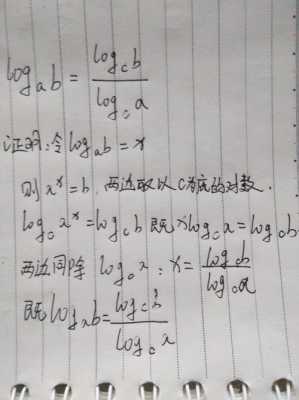 log_a b = log_c b / log_c a
证明:令log_a b = x
则 a^x = b, 两边取以C为底的对数.
log_c a^x = log_c b 既 x log_c a = log_c b
两边同除 log_c a : x = log_c b / log_c a
既 log_a b = log_c b / log_c a